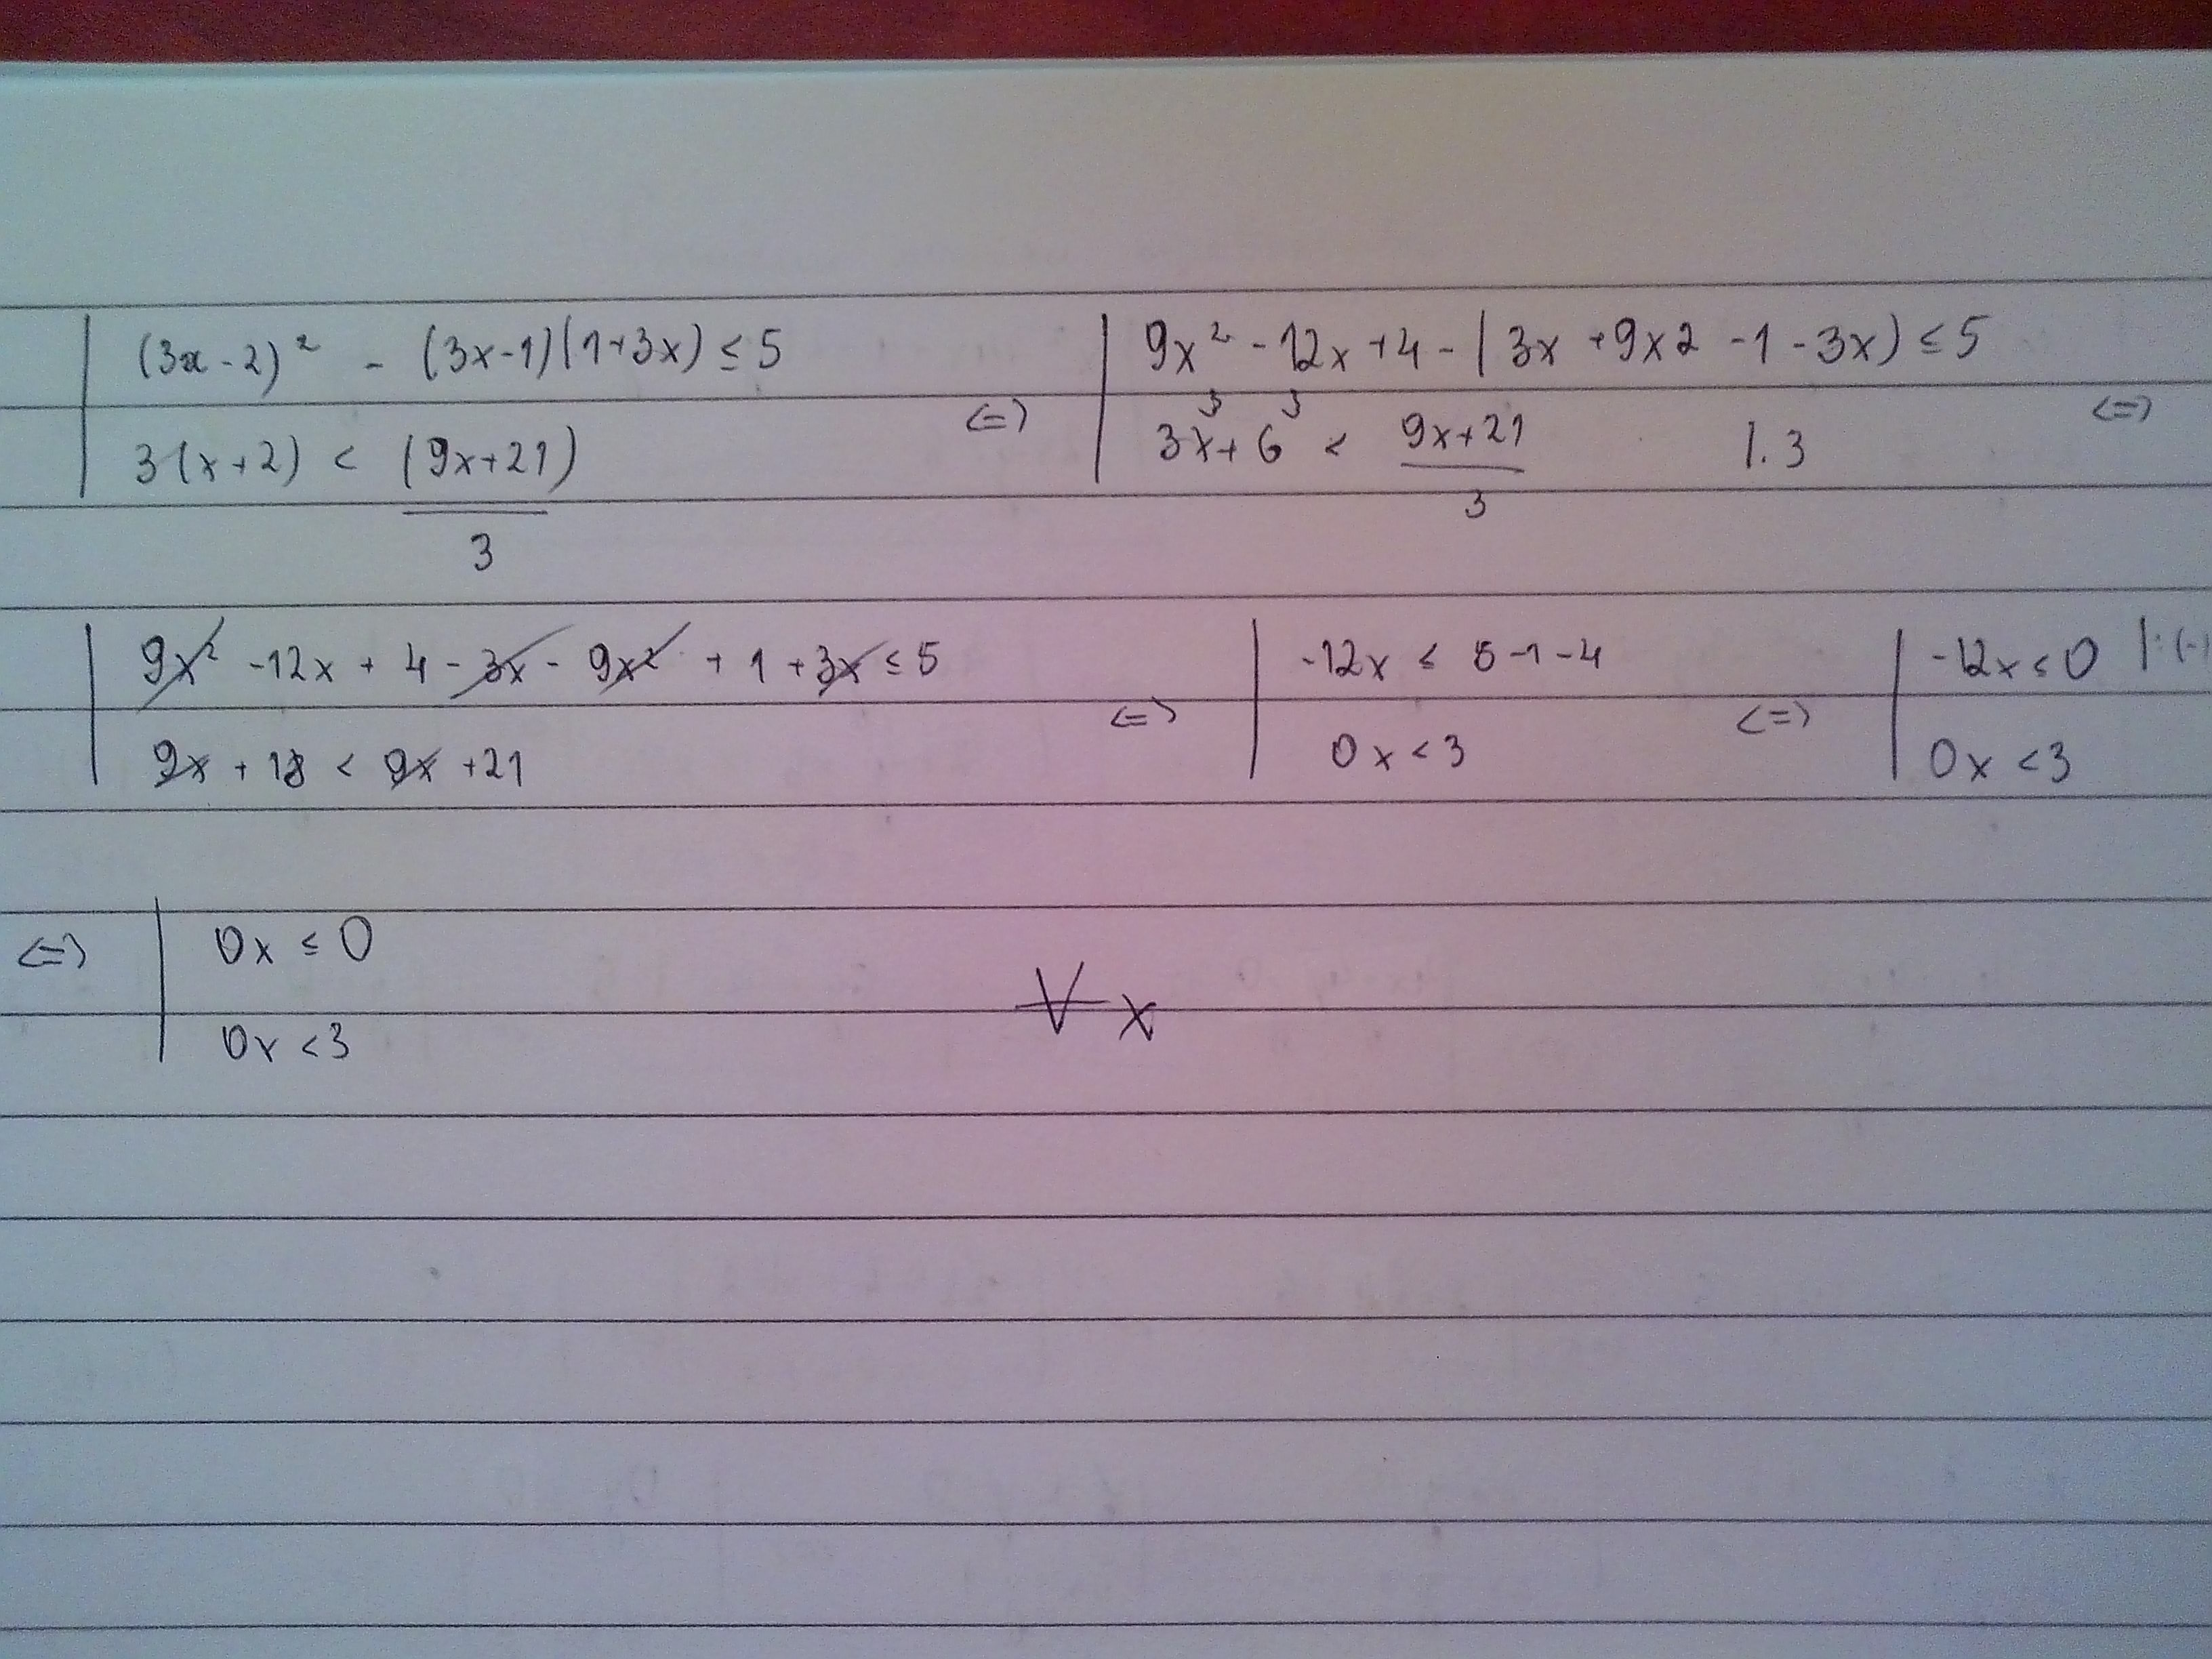 (3x-2)² - (3x-1)(1+3x) ≤ 5
3(x+2) < (9x+21)
3
<=>
9x² - 12x + 4 - (3x + 9x2 - 1 - 3x) ≤ 5
3 3
3x + 6 < 9x+21 |.3
3
<=>
9x² - 12x + 4 - 3x - 9x² + 1 + 3x ≤ 5
9x + 18 < 9x + 21
<=>
-12x ≤ 5-1-4
0x < 3
<=>
-12x ≤ 0 |:(-
0x < 3
<=>
0x ≤ 0
0x < 3
∀x